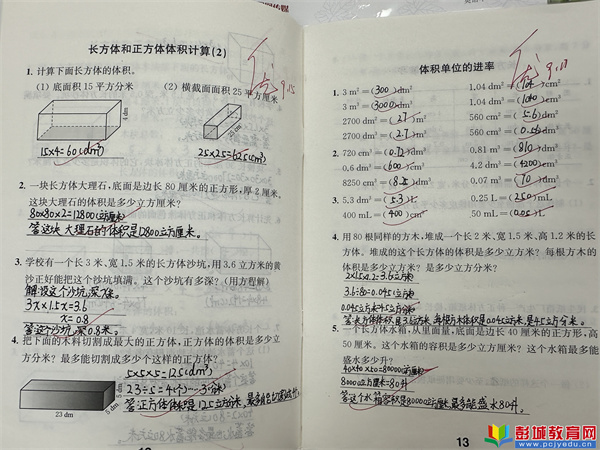 长方体和正方体体积计算(2)
1. 计算下面长方体的体积。
(1) 底面积15平方分米 (2) 横截面面积25平方厘米
4 dm
25 cm
15×4=60(dm³)
25×25=625(cm³)
2. 一块长方体大理石,底面是边长80厘米的正方形,厚2厘米。
这块大理石的体积是多少立方厘米?
80×80×2=12800(立方厘米)
答:这块大理石的体积是12800立方厘米。
3. 学校有一个长3米、宽1.5米的长方体沙坑,用3.6立方米的黄
沙正好能把这个沙坑填满。这个沙坑有多深?(用方程解)
解:设这个沙坑深x米。
3×x×1.5x=3.6
x=0.8
答:这个沙坑深0.8米。
4. 把下面的木料切割成最大的正方体,正方体的体积是多少立
方分米?最多能切割成多少个这样的正方体?
5×5×5=125(dm³)
23÷5=4(个)……3(分米)
答:正方体体积是125立方分米,
5 dm
5 dm
23 dm
优 9.15
体积单位的进率
优 9.17
1. 3 m²=(300)dm² 1.04 dm²=(104)cm²
3 m³=(3000)dm³ 1.04 dm³=(1040)cm³
2700 dm²=(27)m² 560 cm²=(5.6)dm²
2700 dm³=(2.7)m³ 560 cm³=(0.56)dm³
2. 720 cm³=(0.72)dm³ 0.81 m³=(810)dm³
0.6 dm³=(600)cm³ 4.2 dm³=(4200)cm³
8250 cm³=(8.25)dm³ 0.07 m³=(70)dm³
3. 5.3 dm³=(5.3)L 0.25 L=(250)mL
400 mL=(400)cm³ 50 mL=(0.05)L
4. 用80根同样的方木,堆成一个长2米、宽1.5米、高1.2米的长
方体。堆成的这个长方体的体积是多少立方米?每根方木的
体积是多少立方米?是多少立方分米?
2×1.5×1.2=3.6立方米
3.6÷80=0.045立方米
0.045立方米=45立方分米
答:长方体体积是3.6立方米,每根方木体积是0.045立方米,是45立方分米。
5. 一个长方体水箱,从里面量,底面是边长40厘米的正方形,高
50厘米。这个水箱的容积是多少立方厘米?这个水箱最多能
盛水多少升?
40×40×50=80000(立方厘米)
80000立方厘米=80升
答:这个水箱容积是80000立方厘米,最多能盛水80升。
13
彭城教育网
www.pcjyedu.com